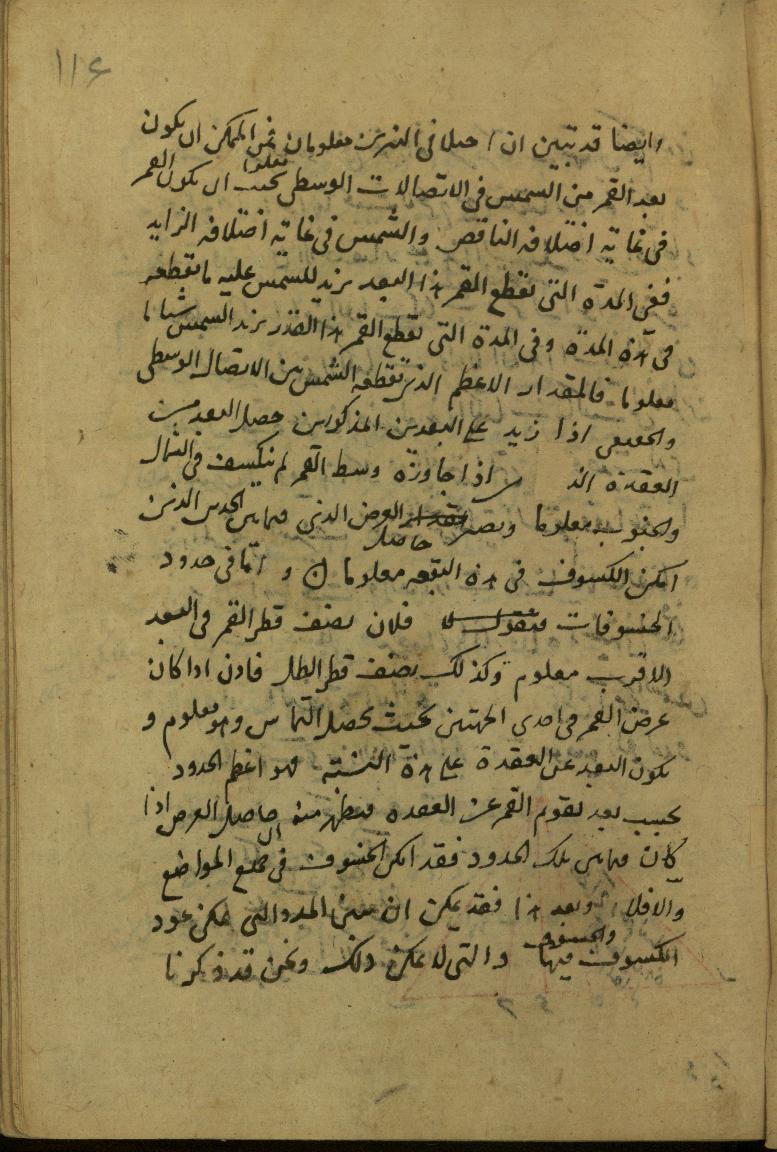 ١١٤
وايضا قد تبين ان اختلافى النيرين معلومان فمن الممكن ان يكون
بعد القمر من الشمس فى الاتصالات الوسطى معلوما بحيث ان يكون القمر
فى غاية اختلافه الناقص والشمس فى غاية اختلافه الزايد
ففى المدة التى يقطع القمر هذا البعد يزيد للشمس عليه ما يقطعه
فى هذه المدة وفى المدة التى يقطع القمر هذا القدر يزيد الشمس شيأ ما
معلوما فالمقدار الاعظم الذى يقطعه الشمس بين الاتصال الوسطى
والحقيقى اذا زيد على البعدين المذكورين حصل البعد من
العقدة الذى اذا جاوزه وسط القمر لم ينكسف فى الشمال
والجنوب معلوما ويصير العرض الذى فيما بين الحدين الذين
امكن الكسوف فى هذه البقعه معلوما و اما فى حدود
الخسوفات فنقول فلان نصف قطر القمر فى البعد
الاقرب معلوم وكذلك نصف قطر الظل فاذن اذا كان
عرض القمر فى احدى الجهتين بحيث يحصل التماس وهو معلوم و
يكون البعد عن العقدة على هذه النسبة فهو اعظم الحدود
بحسب بعد تقويم القمر عن العقده فيظهر منه ان حاصل العرض اذا
كان فيما بين تلك الحدود فقد امكن الخسوف فى جميع المواضع
والا فلا وبعد هذا فقد يمكن ان نبين المدد التى يمكن عود
الكسوف والخسوف فيها والتى لا يمكن ذلك ونحن قد ذكرنا